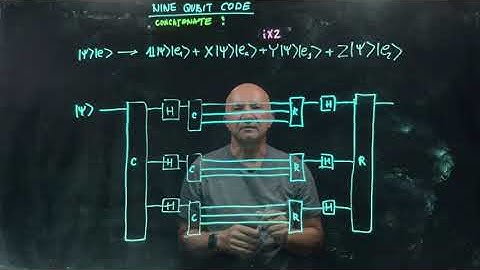 NINE QUBIT CODE
CONCATENATE :
iXZ
|Ψ⟩|e⟩ → 𝟙|Ψ⟩|e₁⟩ + X|Ψ⟩|e₂⟩ + Y|Ψ⟩|e₃⟩ + Z|Ψ⟩|e₂⟩
|Ψ⟩ C H C R H R
H C R H
H C R H